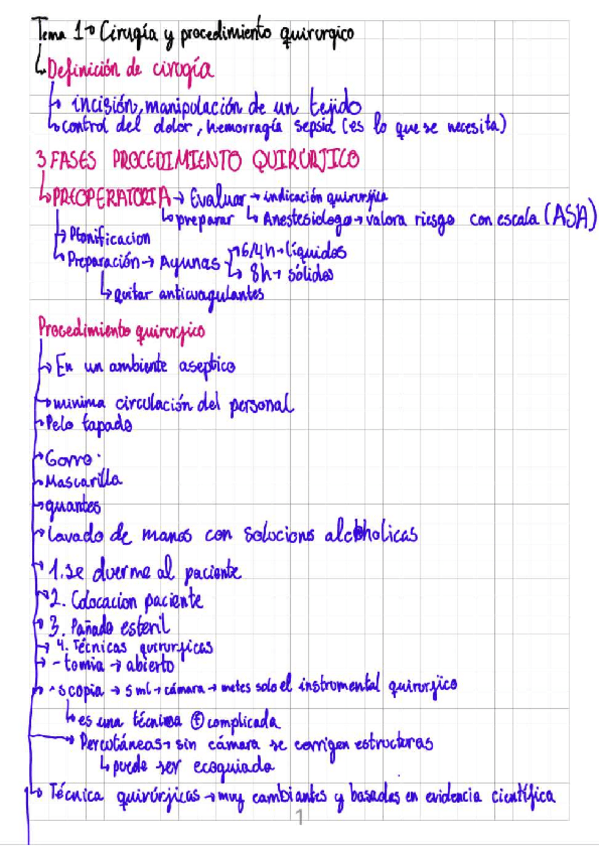 Tema 1→ Cirugía y procedimiento quirurgico
Definición de cirugía
incisión, manipulación de un tejido
control del dolor, hemorragía sepsia (es lo que se necesita)
3 FASES PROCEDIMIENTO QUIRÚRJICO
PREOPERATORIA → Evaluar → indicación quirurjica
preparar Anestesiologo → valora riesgo con escala (ASA)
Planificacion
Preparación → Ayunas 6/4h → líquidos
8h → sólidos
Quitar anticuagulantes
Procedimiento quirurjico
En un ambiente aseptico
minima circulación del personal
Pelo tapado
Gorro
Mascarilla
guantes
Lavado de manos con solucions alcoholicas
1. se duerme al paciente
2. Colocacion paciente
3. Pañado esteril
4. Técnicas quirurjicas
- tomia → abierto
- scopia → 5 ml → cámara → metes solo el instrumental quirurjico
es una técnica + complicada
Percutáneas → sin cámara se corrigen estructuras
puede ser ecoguiada
Técnica quirúrjicas → muy cambiantes y basadas en evidencia científica
1